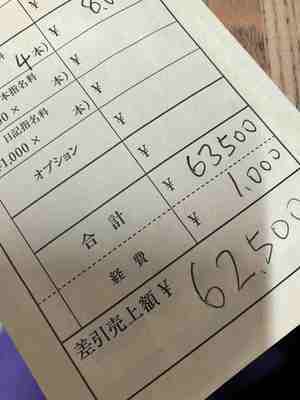 ¥ 8.0
4本)
¥
本指名料
00 × 本) ¥
日記指名料
¥1.000 × 本) ¥
オプション ¥
合計 ¥ 63500
経費 ¥ 1.000
差引売上額 ¥ 62.500